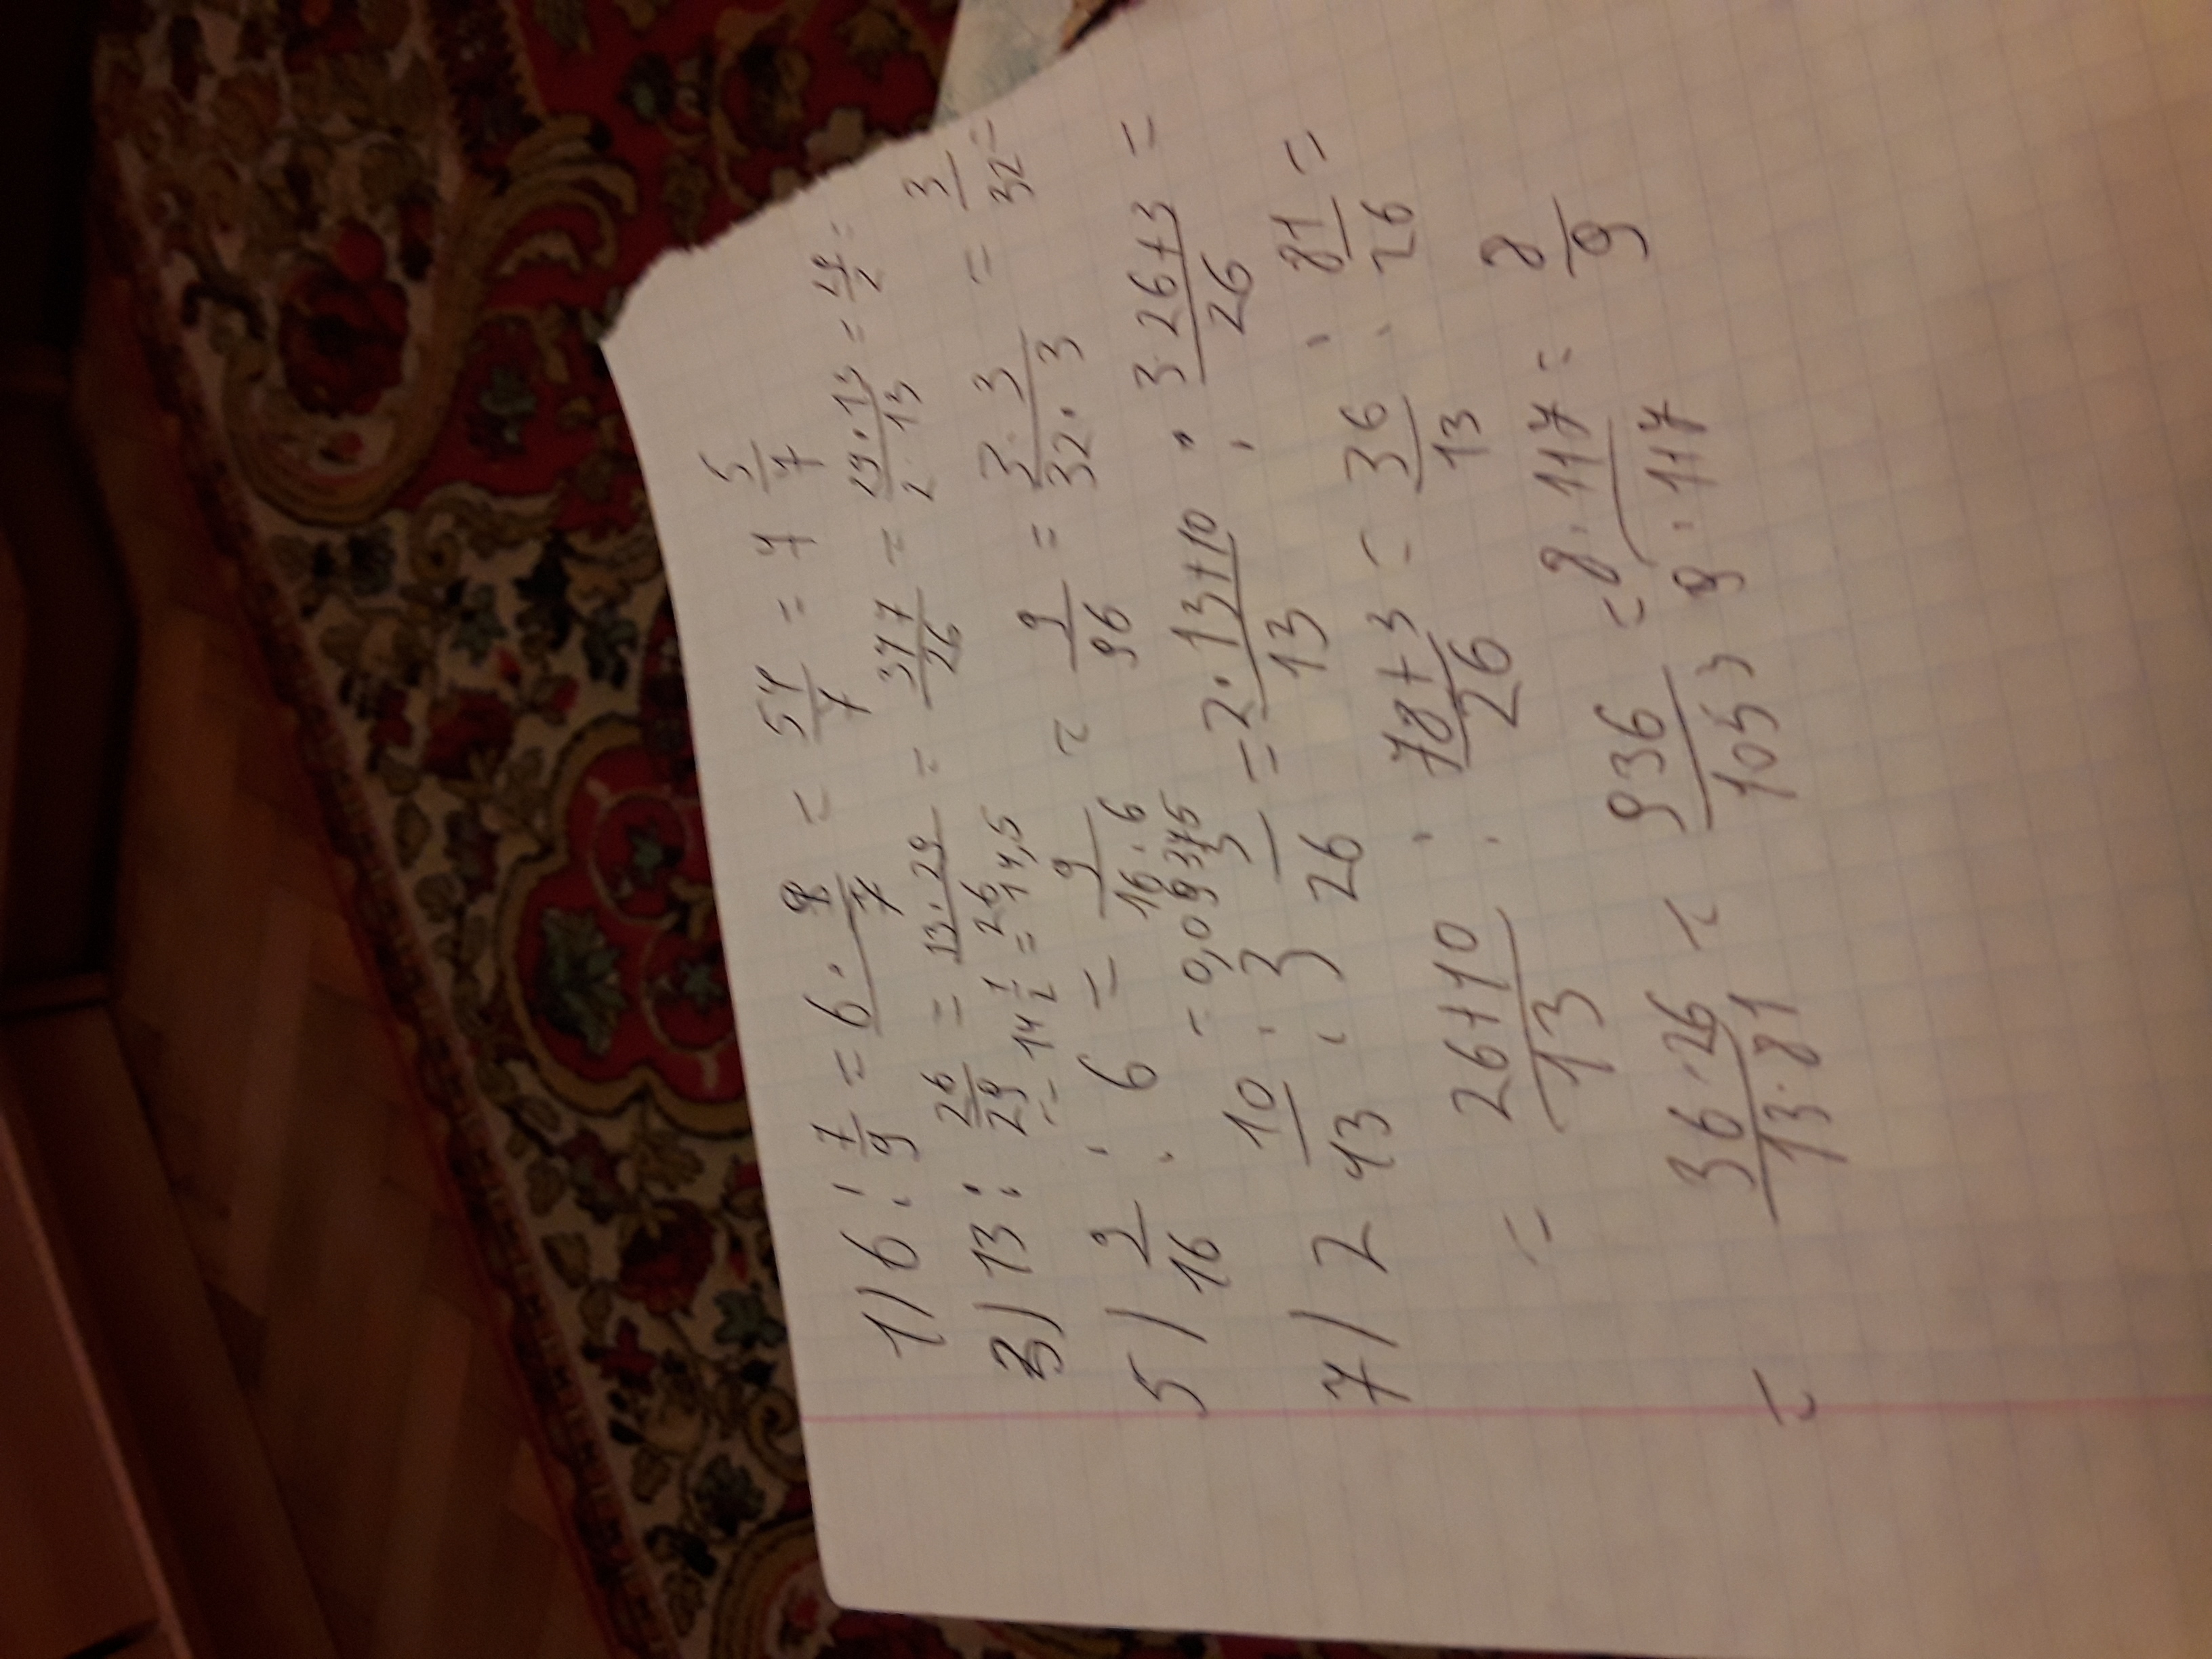 1) 6 : 7/9 = 6·9/7 = 54/7 = 7 5/7
3) 13 : 26/29 = 13·29/26 = 377/26 = 29·13/2·13 = 29/2 =
= 14 1/2 = 14,5
5) 9/16 : 6 = 9/16·6 = 9/96 = 3·3/32·3 = 3/32 =
= 0,09375
7) 2 10/13 : 3 3/26 = 2·13+10/13 : 3·26+3/26 =
= 26+10/13 : 78+3/26 = 36/13 : 81/26 =
= 36·26/13·81 = 936/1053 = 8·117/9·117 = 8/9